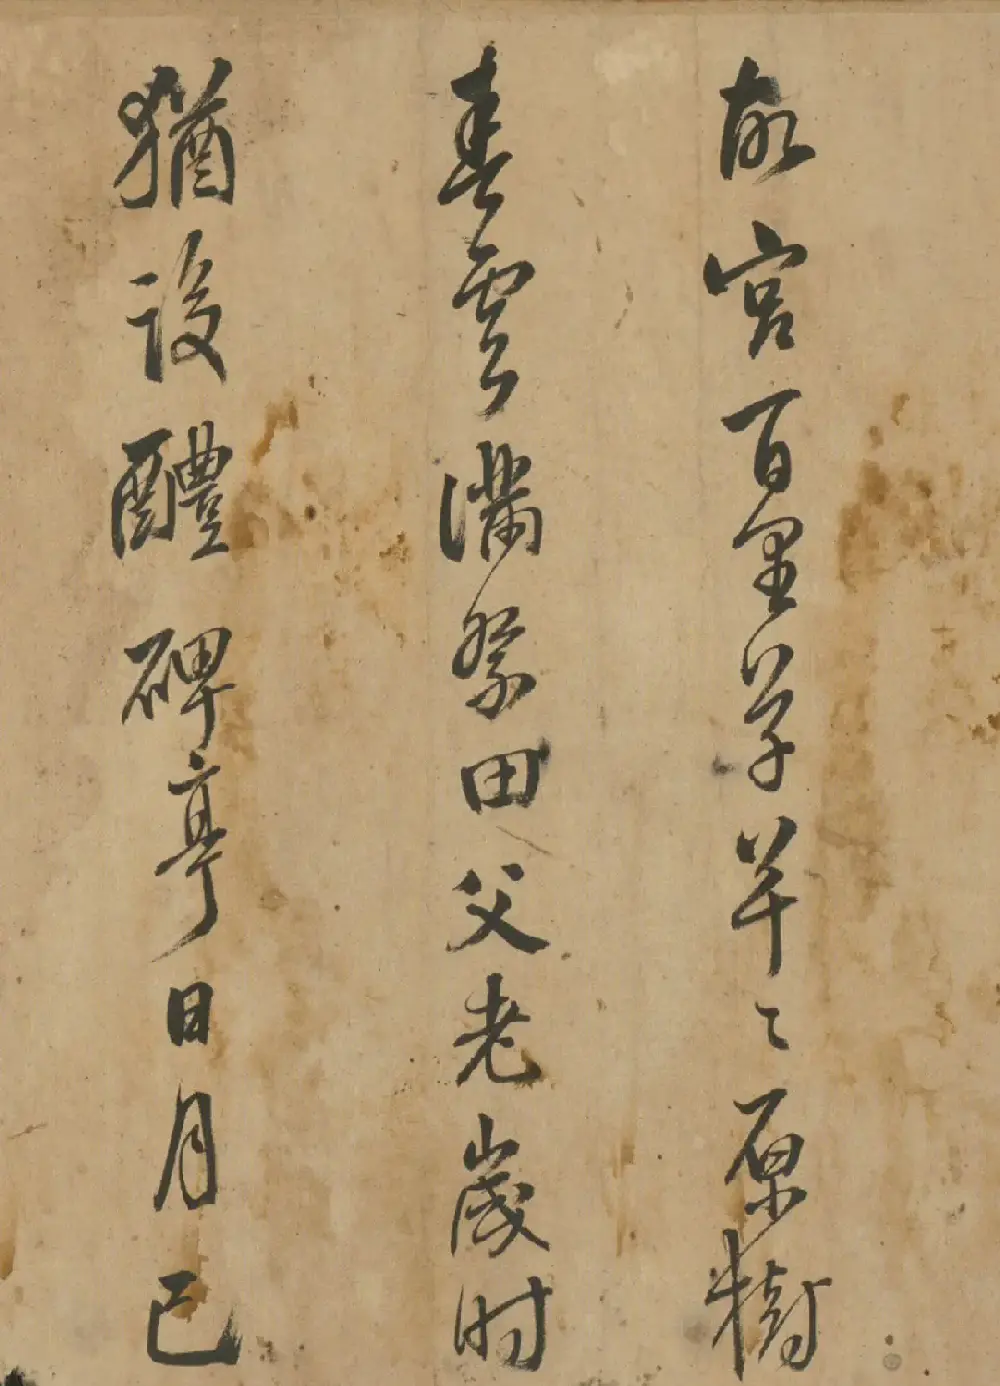 故宫百里草芊〻原樹
春雲滿祭田父老歲时
猶設醴碑亭日月已